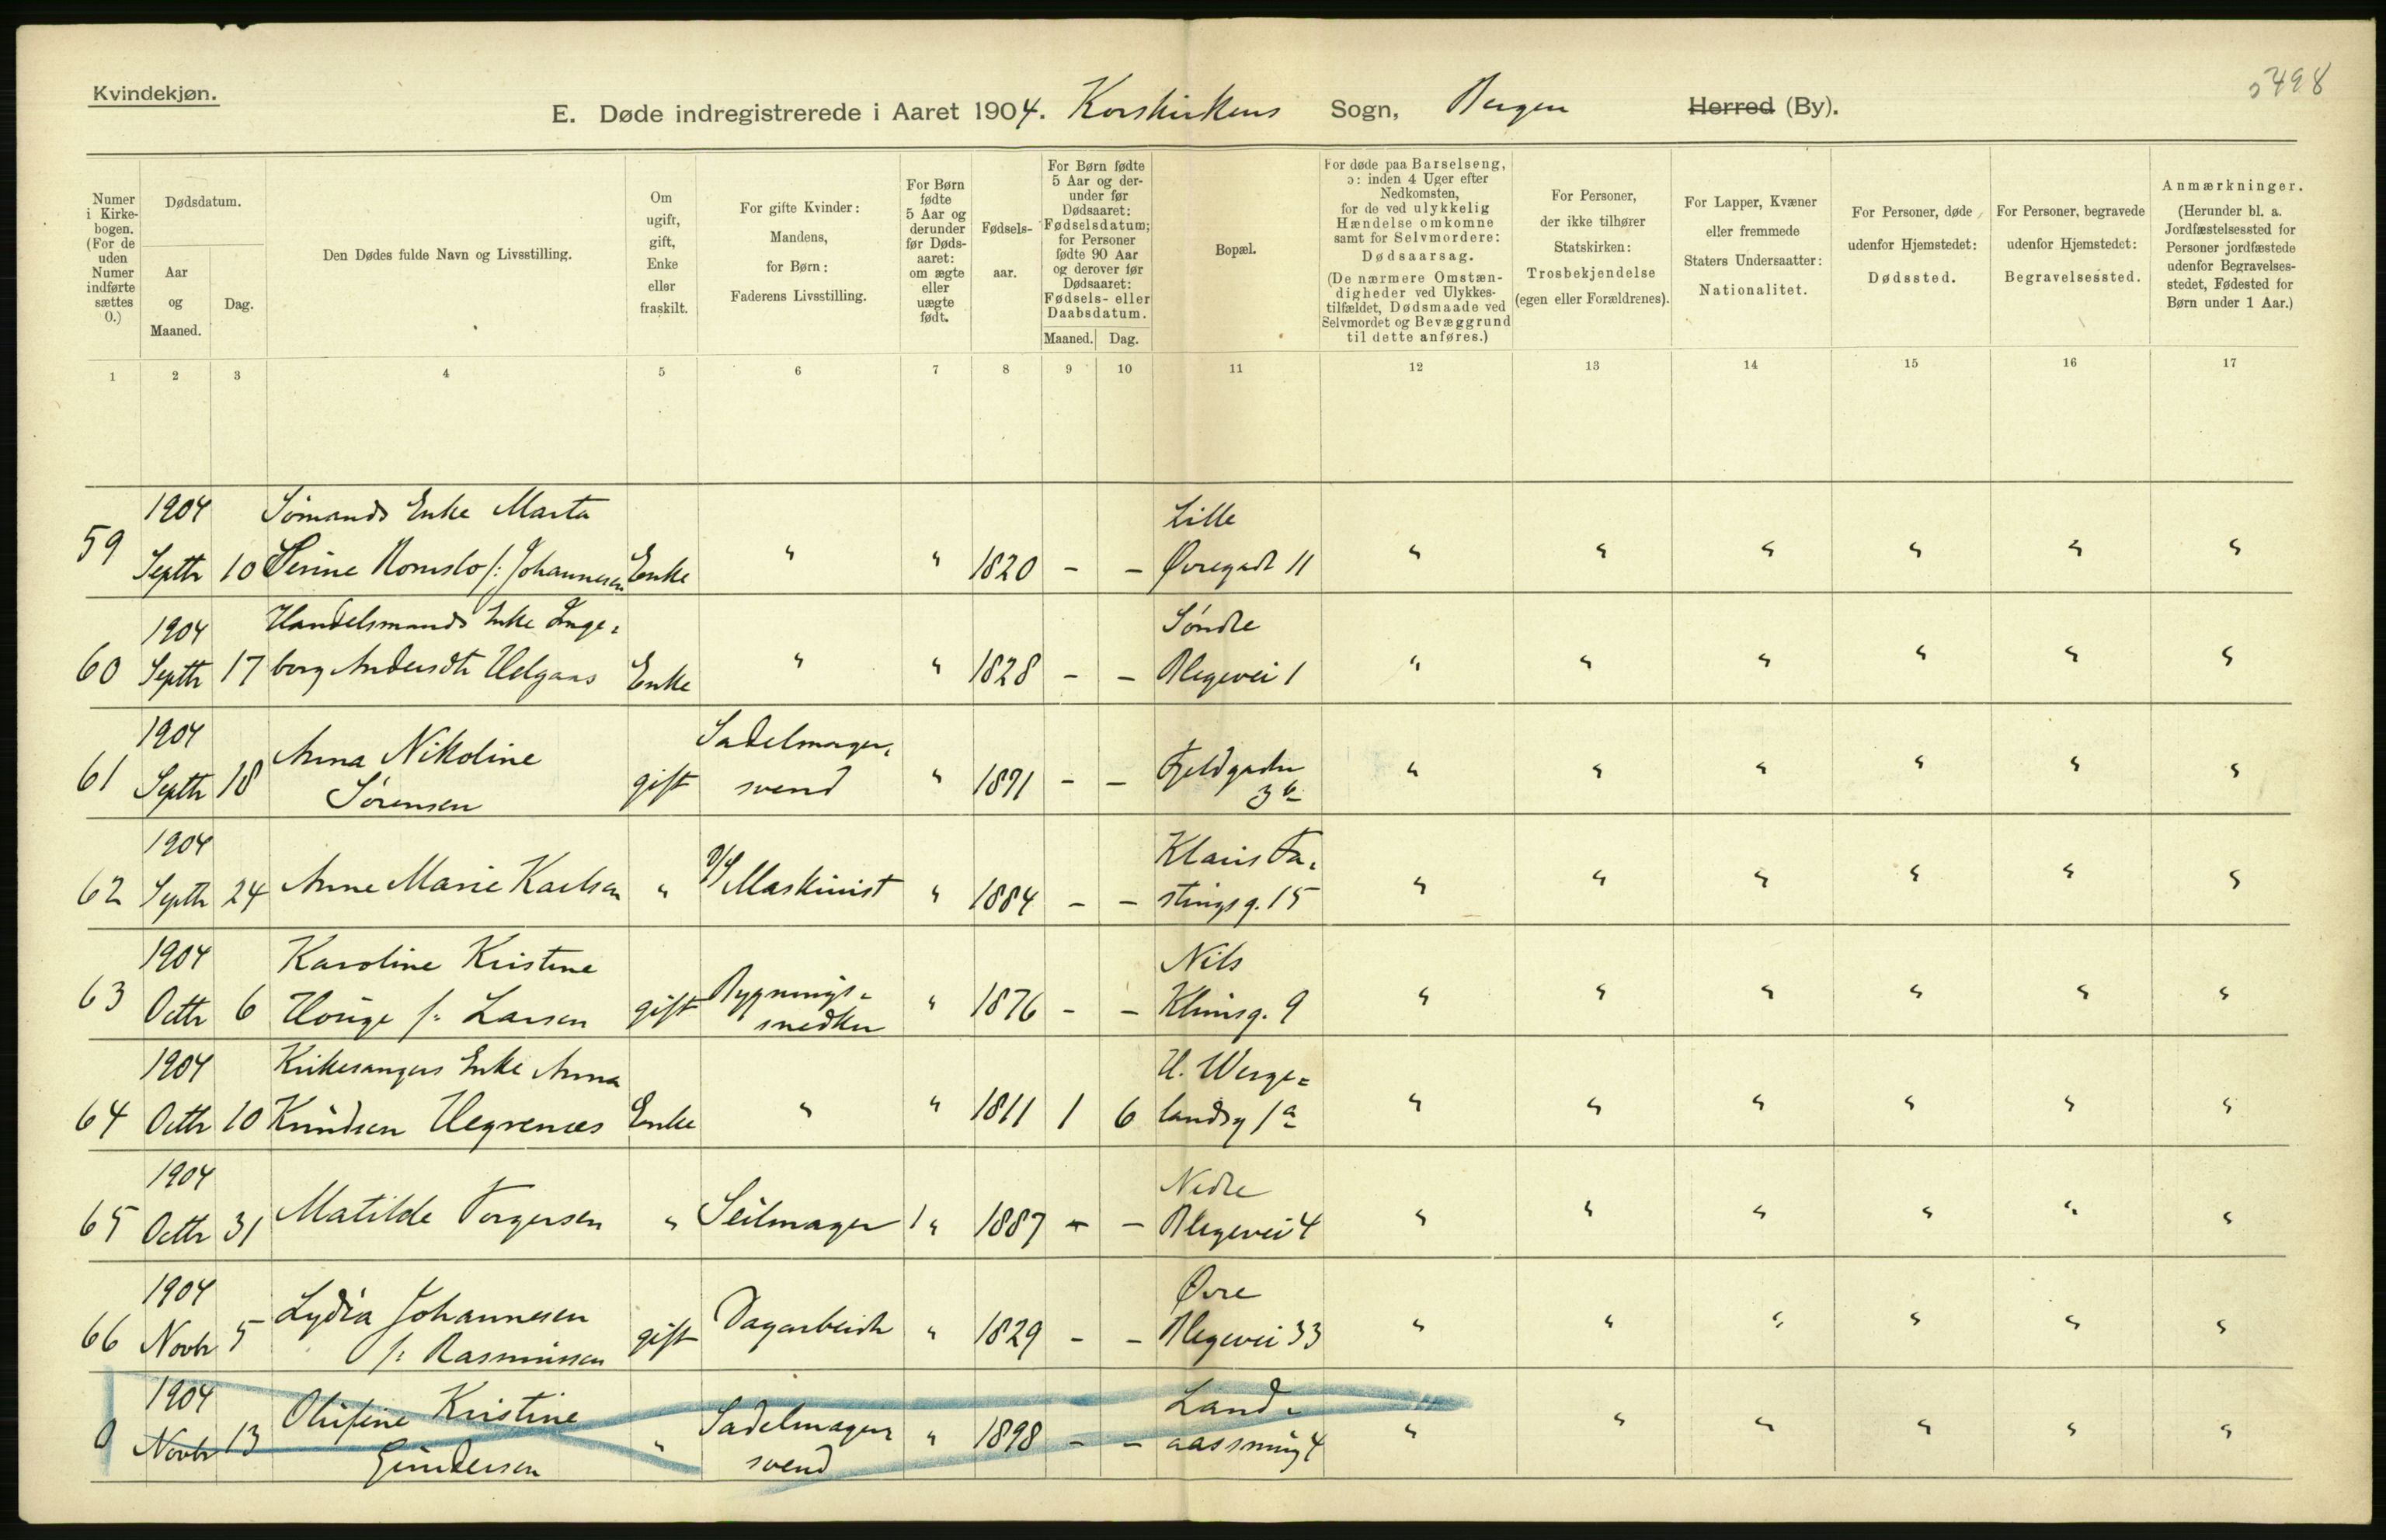 Kvindekjøn.
E. Døde indregistrerede i Aaret 1904. Korskirkens Sogn, Bergen Herred (By).
Numer i Kirkebogen. (For de uden Numer indførte sættes 0.)
Dødsdatum.
Aar og Maaned.
Dag.
Den Dødes fulde Navn og Livsstilling.
Om ugift, gift, Enke eller fraskilt.
For gifte Kvinder: Mandens, for Børn: Faderens Livsstilling.
For Børn fødte 5 Aar og derunder før Dødsaaret: om ægte eller uægte født.
Fødselsaar.
For Børn fødte 5 Aar og derunder før Dødsaaret: Fødselsdatum; for Personer fødte 90 Aar og derover før Dødsaaret: Fødsels- eller Daabsdatum.
Maaned. Dag.
Bopæl.
For døde paa Barselseng, ɔ: inden 4 Uger efter Nedkomsten, for de ved ulykkelig Hændelse omkomne samt for Selvmordere: Dødsaarsag.
(De nærmere Omstændigheder ved Ulykkestilfældet, Dødsmaade ved Selvmordet og Bevæggrund til dette anføres.)
For Personer, der ikke tilhører Statskirken: Trosbekjendelse (egen eller Forældrenes).
For Lapper, Kvæner eller fremmede Staters Undersaatter: Nationalitet.
For Personer, døde udenfor Hjemstedet: Dødssted.
For Personer, begravede udenfor Hjemstedet: Begravelsessted.
Anmærkninger. (Herunder bl. a. Jordfæstelsessted for Personer jordfæstede udenfor Begravelsesstedet, Fødested for Børn under 1 Aar.)
1 2 3 4 5 6 7 8 9 10 11 12 13 14 15 16 17
1904 Sømands Enke Marta Lille
59 Septbr 10 Serine Romslo f: Johannesen Enke " " 1820 - - Øvregade 11 " " " " " "
1904 Handelsmands Enke Inge= Søndre
60 Septbr 17 borg Andersdtr Helgaas Enke " " 1828 - - Blegevei 1 " " " " " "
1904 Anna Nikoline Sadelmager= Fjeldgaden
61 Septbr 18 Sørensen gift svend " 1871 - - 3 b " " " " " "
1904 Klaus Fa=
62 Septbr 24 Anne Marie Karlsen " Maskinist " 1884 - - stingsg. 15 " " " " " "
1904 Karoline Kristine Bygnings= Nils
63 Octbr 6 Hauge f: Larsen gift snedker " 1876 - - Klimsg. 9 " " " " " "
1904 Kirkesangers Enke Anna H. Werge=
64 Octbr 10 Knudsen Hegrenæs Enke " " 1811 1 6 landsg 1 a " " " " " "
1904 Nedre
65 Octbr 31 Matilde Torgersen " Seilmager " 1887 - - Blegevei 4 " " " " " "
1904 Lydia Johannesen Øvre
66 Novbr 5 f: Rasmussen gift Dagarbeider " 1829 - - Blegevei 33 " " " " " "
1904 Olufine Kristine Sadelmager Land=
0 Novbr 13 Gundersen " svend " 1898 - - aassmug 4 " " " " " "